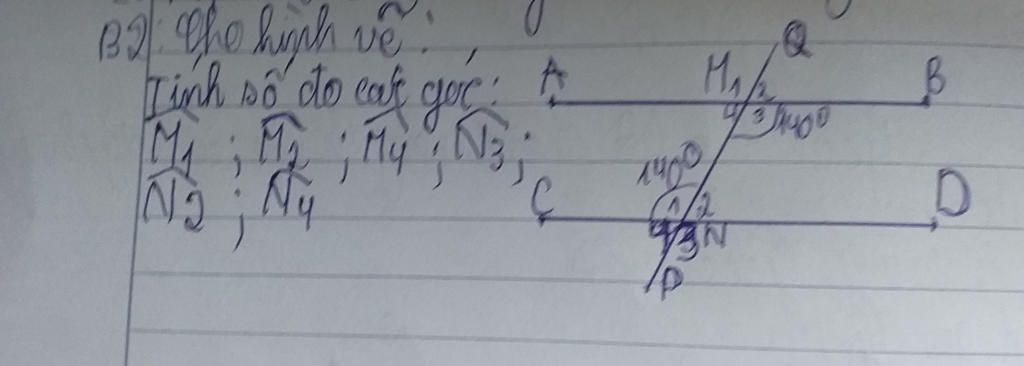 B2: Cho hình vẽ:
Tính số đo các góc:
M1 ; M2 ; M4 ; N3 ;
N2 ; N4
Q
A M1 2 B
4 3 140°
140°
C 1 2 D
4 3 N
P